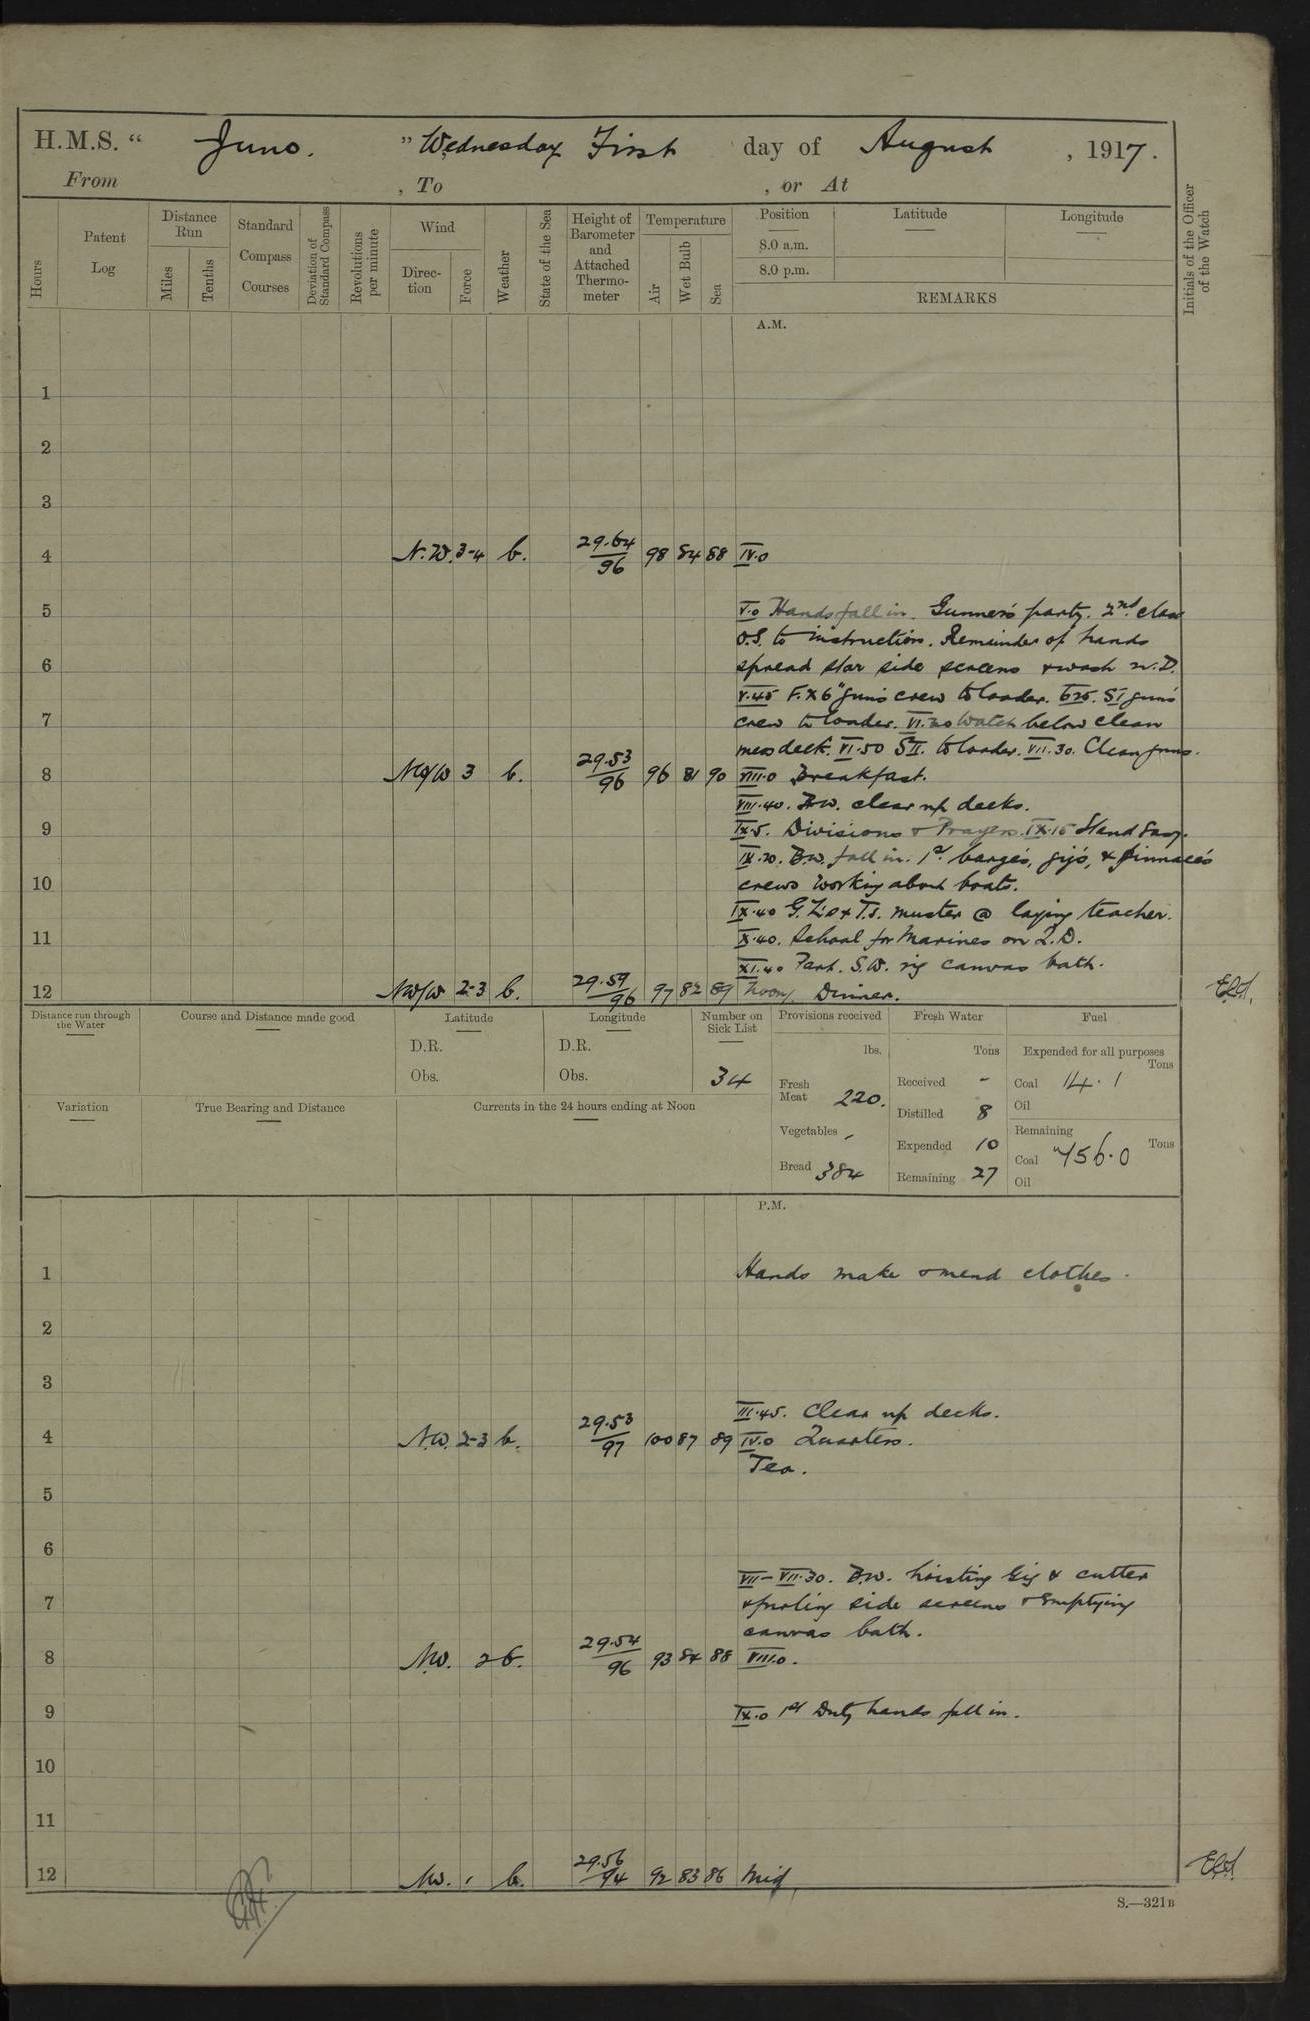 H.M.S. “ Juno. ” Wednesday First day of August , 1917.
From , To , or At
Hours
Patent Log
Distance Run
Miles
Tenths
Standard Compass Courses
Deviation of Standard Compass
Revolutions per minute
Wind
Direc-tion
Force
Weather
State of the Sea
Height of Barometer and Attached Thermo-meter
Temperature
Air
Wet Bulb
Sea
Position
Latitude
Longitude
8.0 a.m.
8.0 p.m.
REMARKS
Initials of the Officer of the Watch
A.M.
1
2
3
4 N.W. 3-4 b. 29.64/96 98 84 88 IV.0
5 V.0 Hands fall in. Gunner's party. 2nd class
O.S. to instruction. Remainder of hands
6 spread star side screens & wash
V.45 F. X 6" gun's crew to loader. 6.25. SI gun's
7 crew to loader. VI.30 Watch below clean
mess deck. VI.50 SII. to loader. VII.30. Clean guns.
8 NW/W 3 b. 29.53/96 96 81 90 VIII.0 Breakfast.
VIII.40. B.W. clear up decks.
9 IX.5. Divisions & Prayers. IX.15 Stand Easy.
IX.20. B.W. fall in. 1st barge's, gig's, & pinnace's
10 crews working about boats.
IX.40 G.L's & T.S. muster @ laying teacher.
11 X.40. School for Marines on Q.D.
XI.40 Part. S.W. rig canvas bath.
12 NW/W 2-3 b. 29.59/96 97 82 89 Noon, Dinner.
Distance run through the Water
Course and Distance made good
Latitude
D.R.
Obs.
Longitude
D.R.
Obs.
Number on Sick List
34
Provisions received
lbs.
Fresh Meat 220.
Vegetables -
Bread 384
Fresh Water
Tons
Received -
Distilled 8
Expended 10
Remaining 27
Fuel
Expended for all purposes
Tons
Coal 14.1
Oil
Remaining
Tons
Coal 456.0
Oil
Variation
True Bearing and Distance
Currents in the 24 hours ending at Noon
P.M.
1 Hands make & mend clothes.
2
3
III.45. Clear up decks.
4 N.W. 2-3 b. 29.53/97 100 87 89 IV.0 Quarters.
Tea.
5
6
VII-VII.30. B.W. hoisting Gig & cutter
7 & furling side screens & emptying
canvas bath.
8 N.W. 2 b. 29.54/96 93 84 88 VIII.0.
9 IX.0 1st Duty hands fall in.
10
11
12 NW. 1 b. 29.56/94 92 83 86 Mid
S.—321B